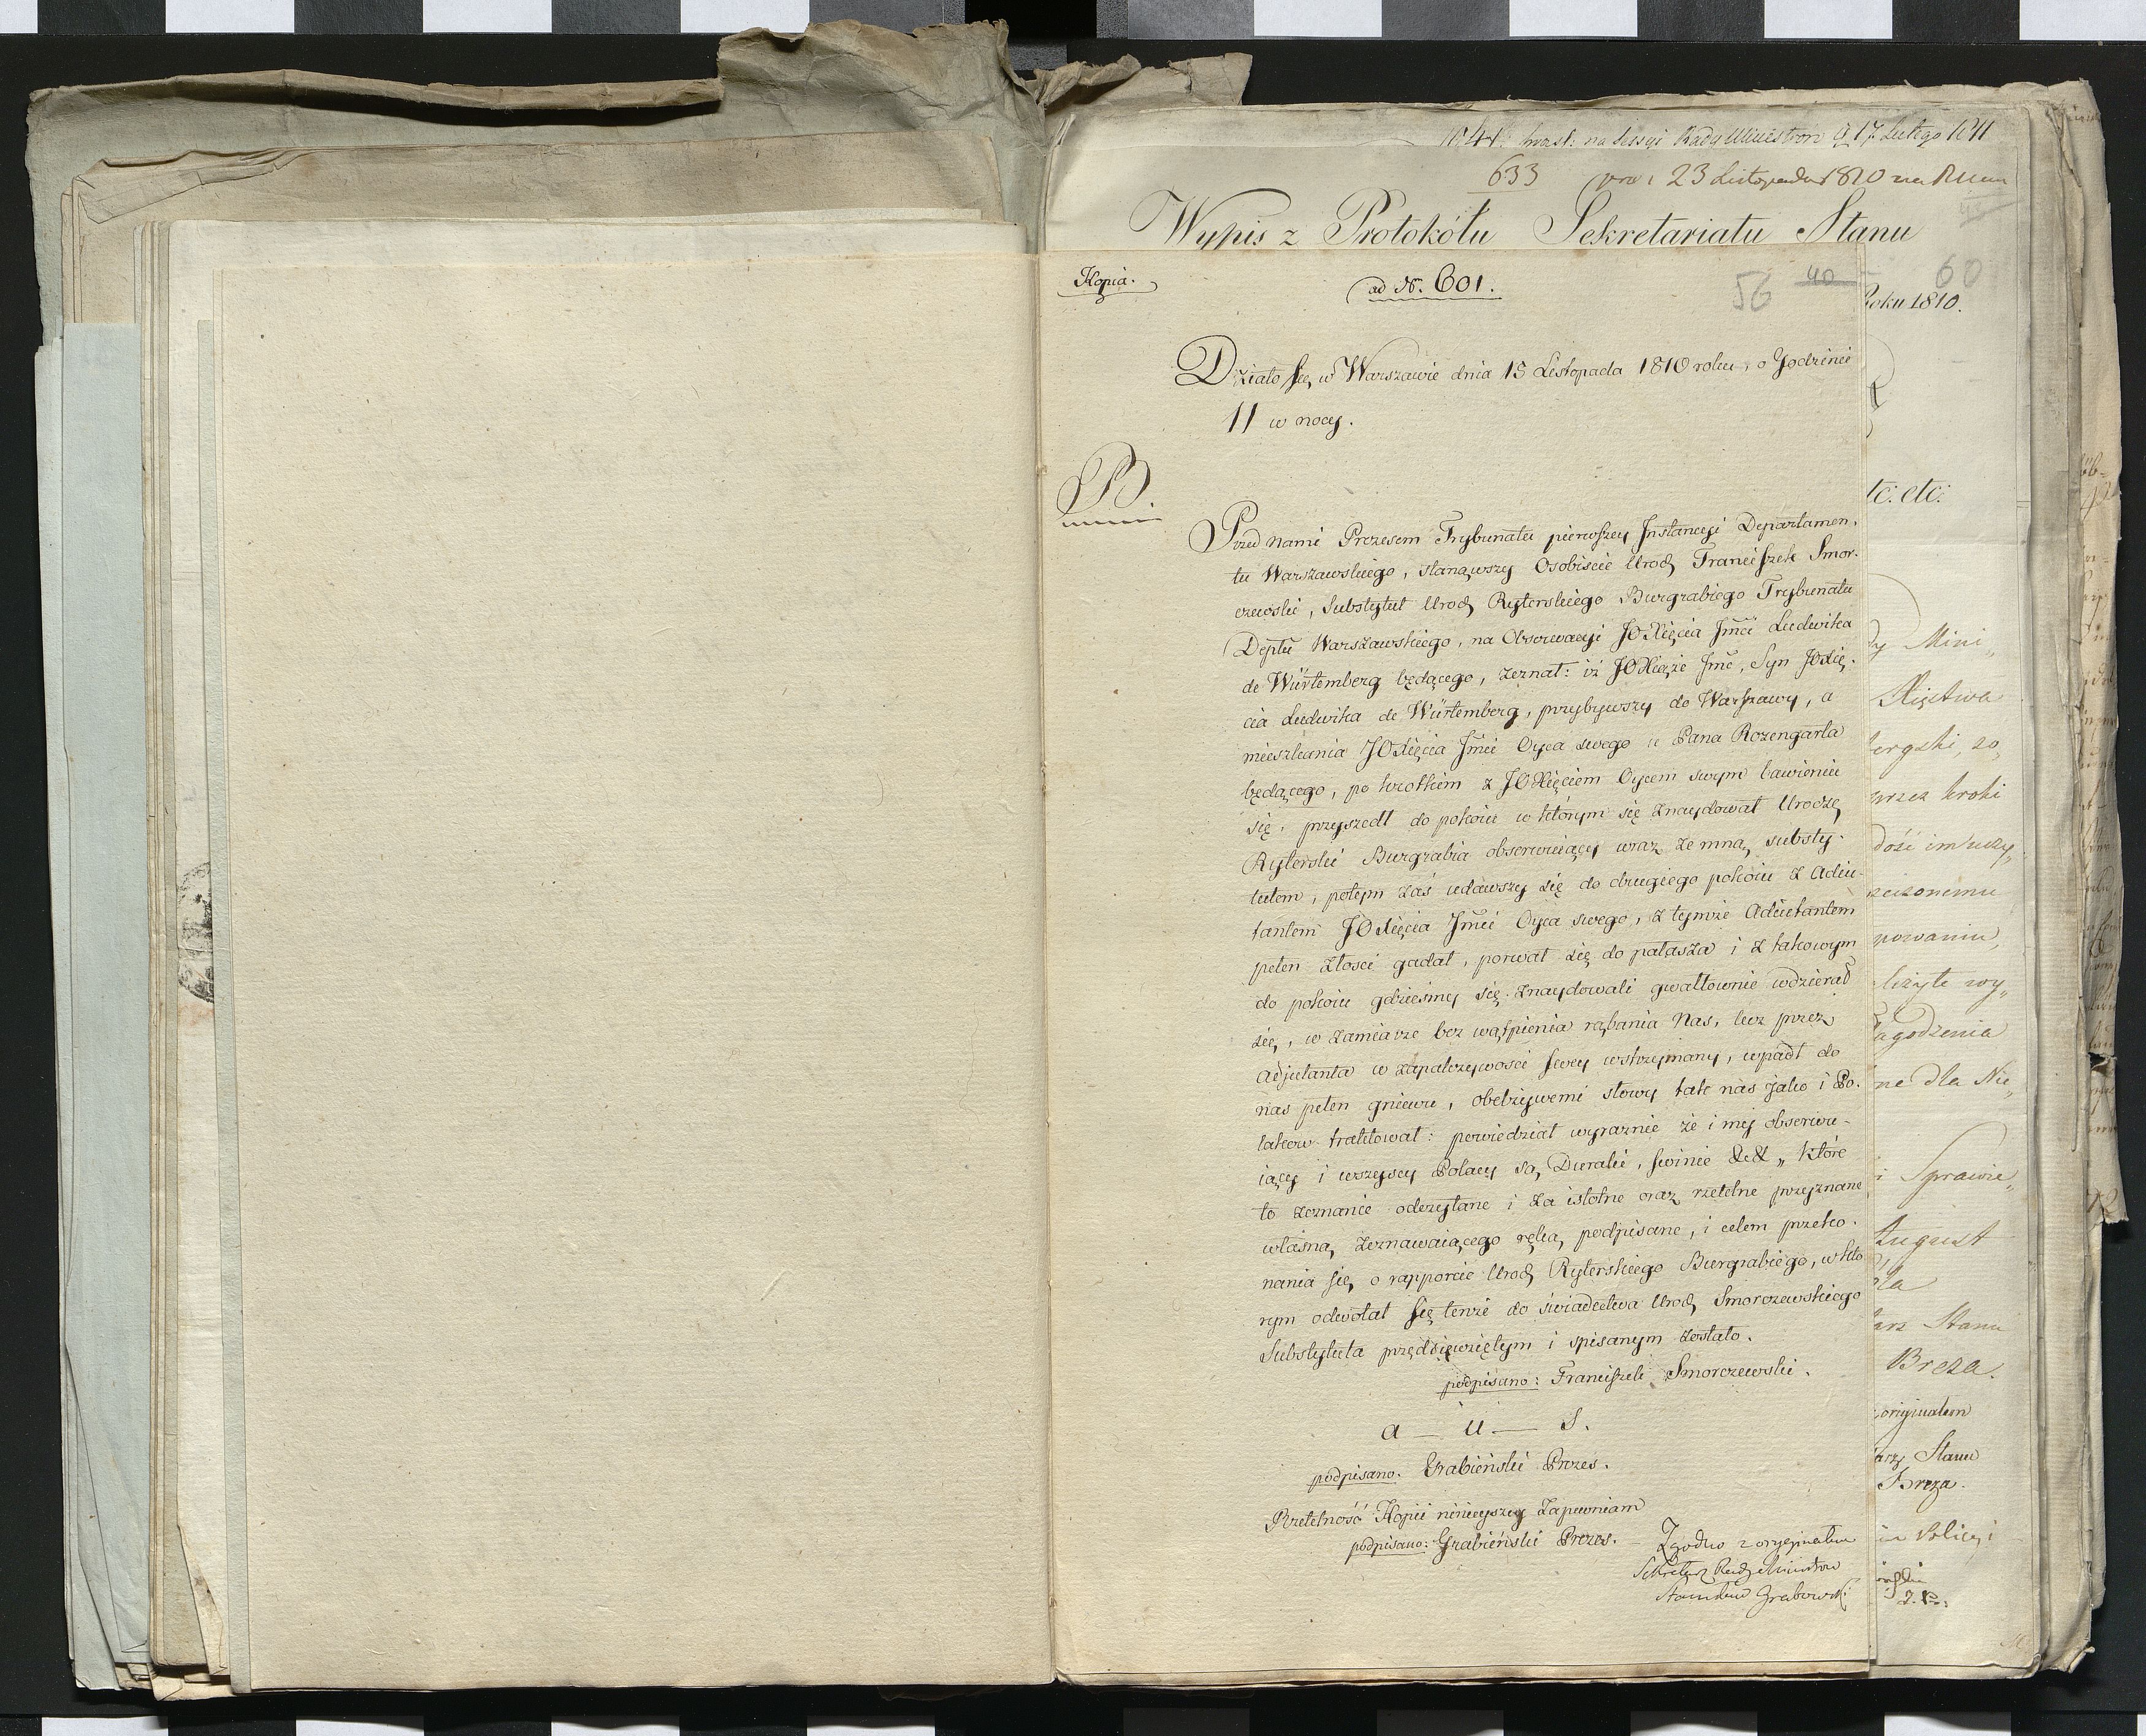 na Sessyi Rady Ministrow d 17 Lutego 1811
633 23 Listopada 1810 na
Wypis z Protokółu Sekretariatu Stanu
Kopia.
ad N. 601.
56 40
60
Roku 1810.
Działo się w Warszawie dnia 15 Listopada 1810 roku, o Godzinie
11 w nocy.
B.
etc: etc:
Przed nami Prezesem Trybunału pierwszey Instancyi Departamen-
tu Warszawskiego, stanąwszy Osobiście Urod Franciszek Smor-
czewski, Substytut Urod Ryterskiego Burgrabiego Trybunału
Deptu Warszawskiego, na Obserwacyi JOXięcia Jmci Ludwika
de Würtemberg będącego, zeznał: iż JOXiąże Jmć, Syn JOXię-
cia Ludwika de Würtemberg, przybywszy do Warszawy, a
mieszkania JOXięcia Jmci Oyca swego u Pana Rozengarta
będącego, po krotkim z JOXięciem Oycem swym bawieniu
się, przyszedł do pokoiu w którym się znaydował Urodz
Ryterski Burgrabia obserwuiący wraz ze mną substy-
tutem, potym zaś udawszy się do drugiego pokoiu z Adiu-
tantem JOXięcia Jmci Oyca swego, z tymże Adiutantem
pełen złości gadał, porwał się do pałasza i z takowym
do pokoiu gdzieśmy się znaydowali gwałtownie wdzierał
się, w zamiarze bez wątpienia rąbania Nas, lecz przez
Adjutanta w zapalczywości swey wstrzymany, wpadł do
nas pełen gniewu, obelżywemi słowy tak nas jako i Po-
lakow traktował: powiedział wyraznie że i my obserwu-
iący i wszyscy Polacy są Duraki, świnie &&, które
to zeznanie odczytane i za istotne oraz rzetelne przyznane
własną zeznawaiącego ręką podpisane, i celem przeko-
nania się o rapporcie Urod Ryterskiego Burgrabiego, w któ
rym odwołał się tenże do świadectwa Urod Smorczewskiego
Substytuta przedsięwziętym i spisanym zostało.
podpisano: Franciszek Smorczewski.
a — u — s.
podpisano. Grabieński Prezes.
Rzetelność Kopii ninieyszey zapewniam
podpisano: Grabieński Prezes. — Zgodno z oryginałem
Sekretarz Rady Ministrow
Stanisław Grabowski
Mini„
Xięstwa
kroki
agodzenia
ne dla Nie„
Sprawie„
August
Stanu
Breza.
originałem
Stanu
Breza.
Policyi